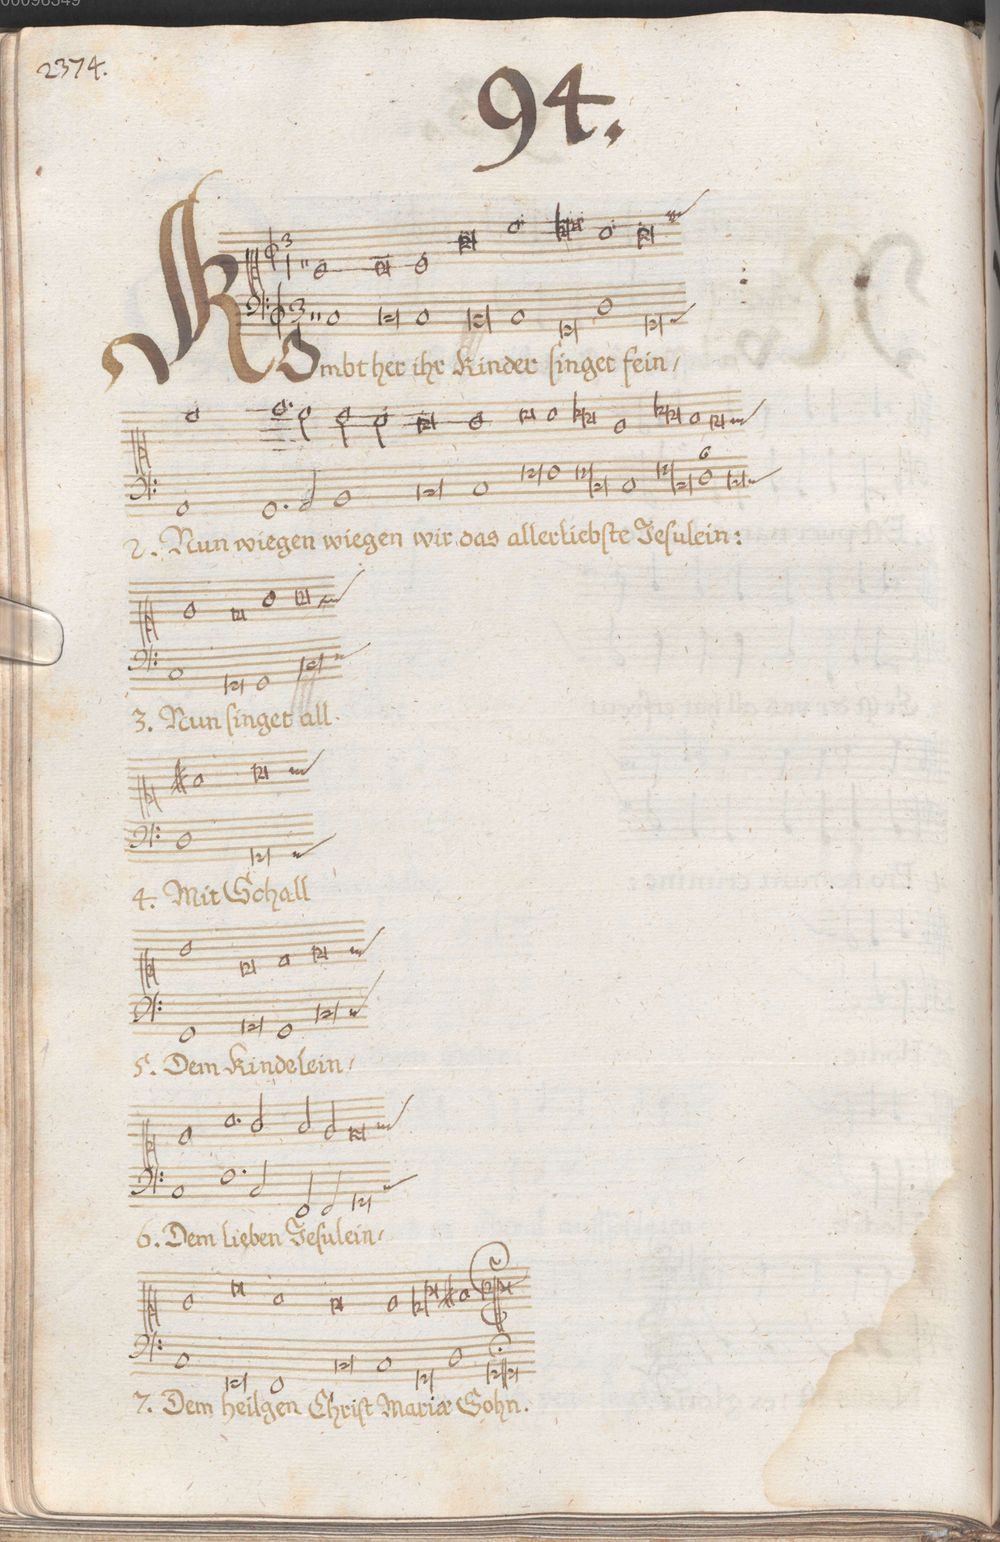 00096549
2374.
94.
Kombt her ihr Kinder singet fein/
2. Nun wiegen wiegen wir das allerliebste Jesulein:
3. Nun singet all.
4. Mit Schall
5. Dem Kindelein/
6. Dem lieben Jesulein/
7. Dem heilgen Christ Mariæ Sohn.